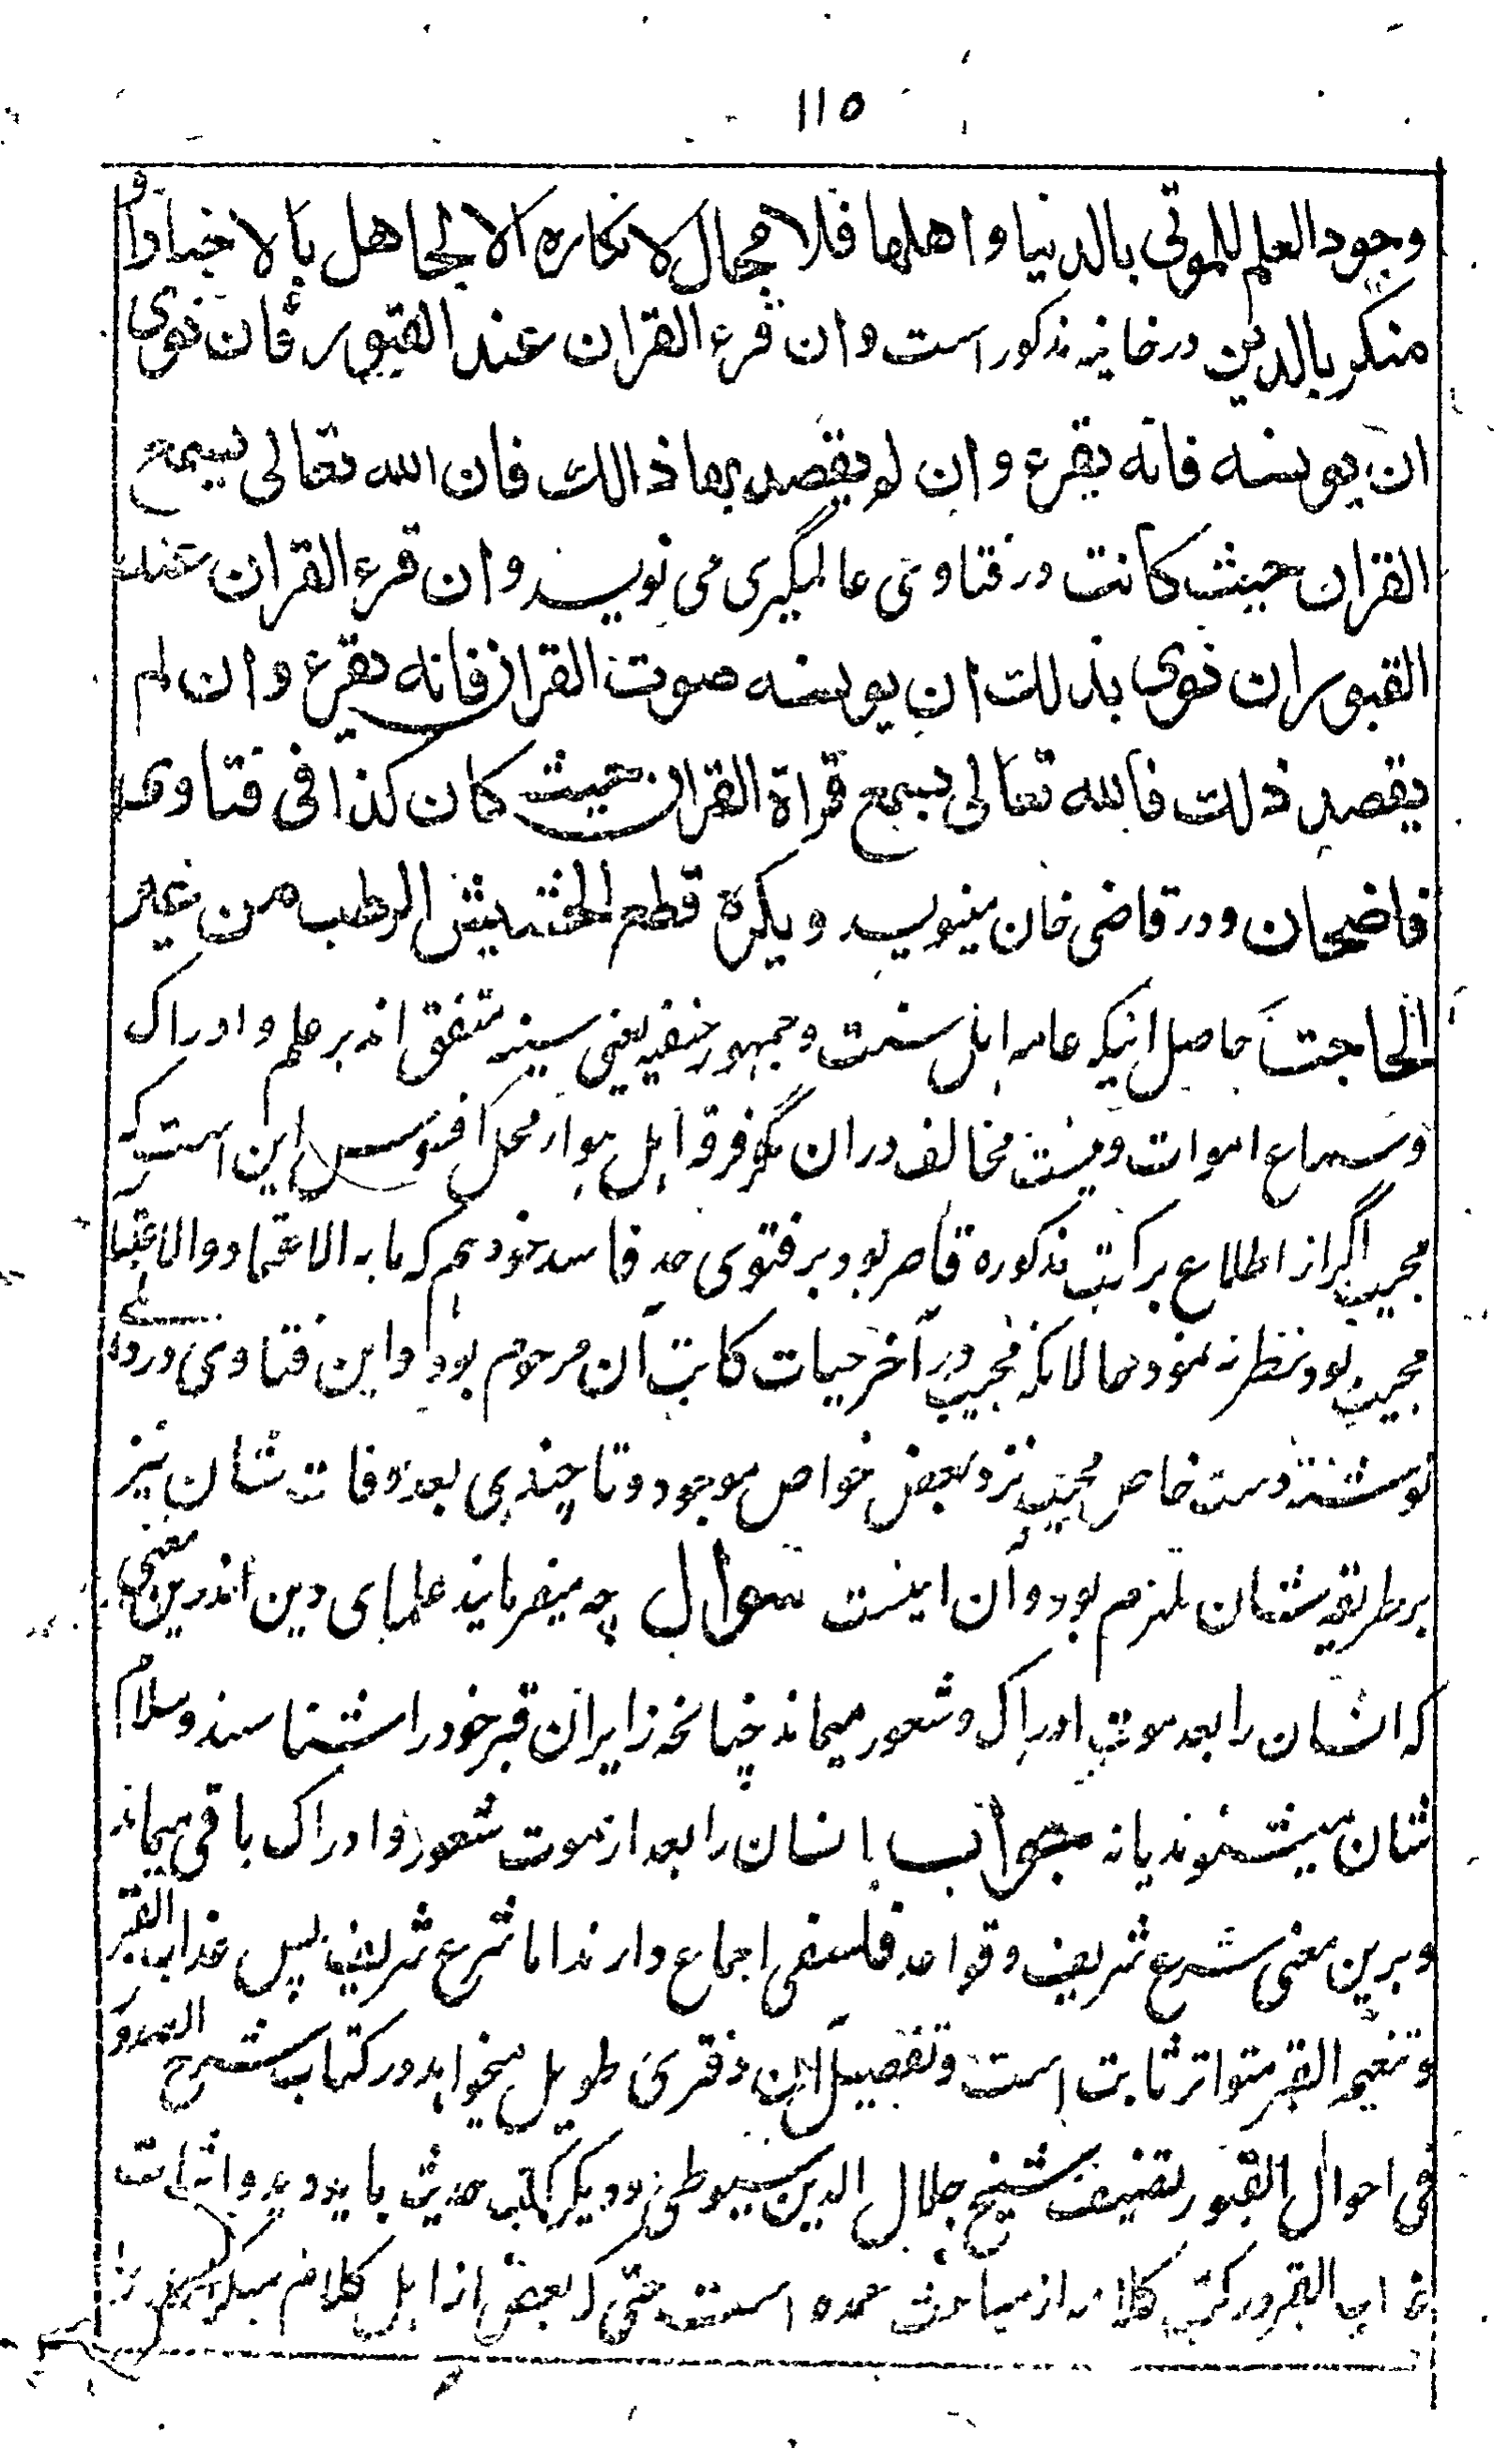 ۱۱۵
وجود العلم للموتی بالدنیا واهلها فلا مجال لانکاره الا لجاهل بالاخبار او
منکر بالدین در خانیه مذکور است وان قرء القران عند القبور فان نوی
ان یونسه فانه یقرء وان لم یقصد بها ذالک فان الله تعالی یسمع
القران حیث کانت ودر فتاوی عالمگیری می نویسد وان قرء القران عند
القبور ان نوی بذلک ان یونسه صوت القران فانه یقرء وان لم
یقصد ذلک فالله تعالی یسمع قراة القران حیث کان کذا فی فتاوی
قاضیخان ودر قاضی خان مینویسد ویکره قطع الحشیش الرطب من غیر
الحاجت حاصل اینکه عامه اهل سنت وجمهور حنفیه یعنی سینه متفق اند بر علم وادراک
وسماع اموات ونیست مخالف دران مگر فرقه اهل هوا ومحل افسوس این است که
مجیب اگر از اطلاع بر کتب مذکوره قاصر بود بر فتوی جد فاسد خود هم که مابه الاعتماد والاعتبار
مجیب بود نظر نه نمود حالانکه مجیب در آخر حیات کاتب آن مرحوم بود واین فتاوی
نوشته دست خاص مجیب نزد بعض خواص موجود وتا چندی بعد وفات شان نیز
بر طریقه شان ملزم بود وآن اینست سوال چه میفرمایند علمای دین اندرین معنی
که انسان را بعد موت ادراک وشعور میماند چنانچه زایران قبر خود را شناسند وسلام
شان میشنوند یا نه جواب انسان را بعد از موت شعور وادراک باقی میماند
وبرین معنی شرع شریف وقواعد فلسفی اجماع دارند اما شرع شریف پس عذاب القبر
وتنعیم القبر متواتر ثابت است وتفصیل آن دفتری طویل میخواهد در کتاب شرح الصدور
فی احوال القبور تصنیف شیخ جلال الدین سیوطی ودیگر کتب حدیث باید دید واثبات
عذاب القبر در کتب کلامیه از مباحث عمده است حتی که بعض از اهل کلام